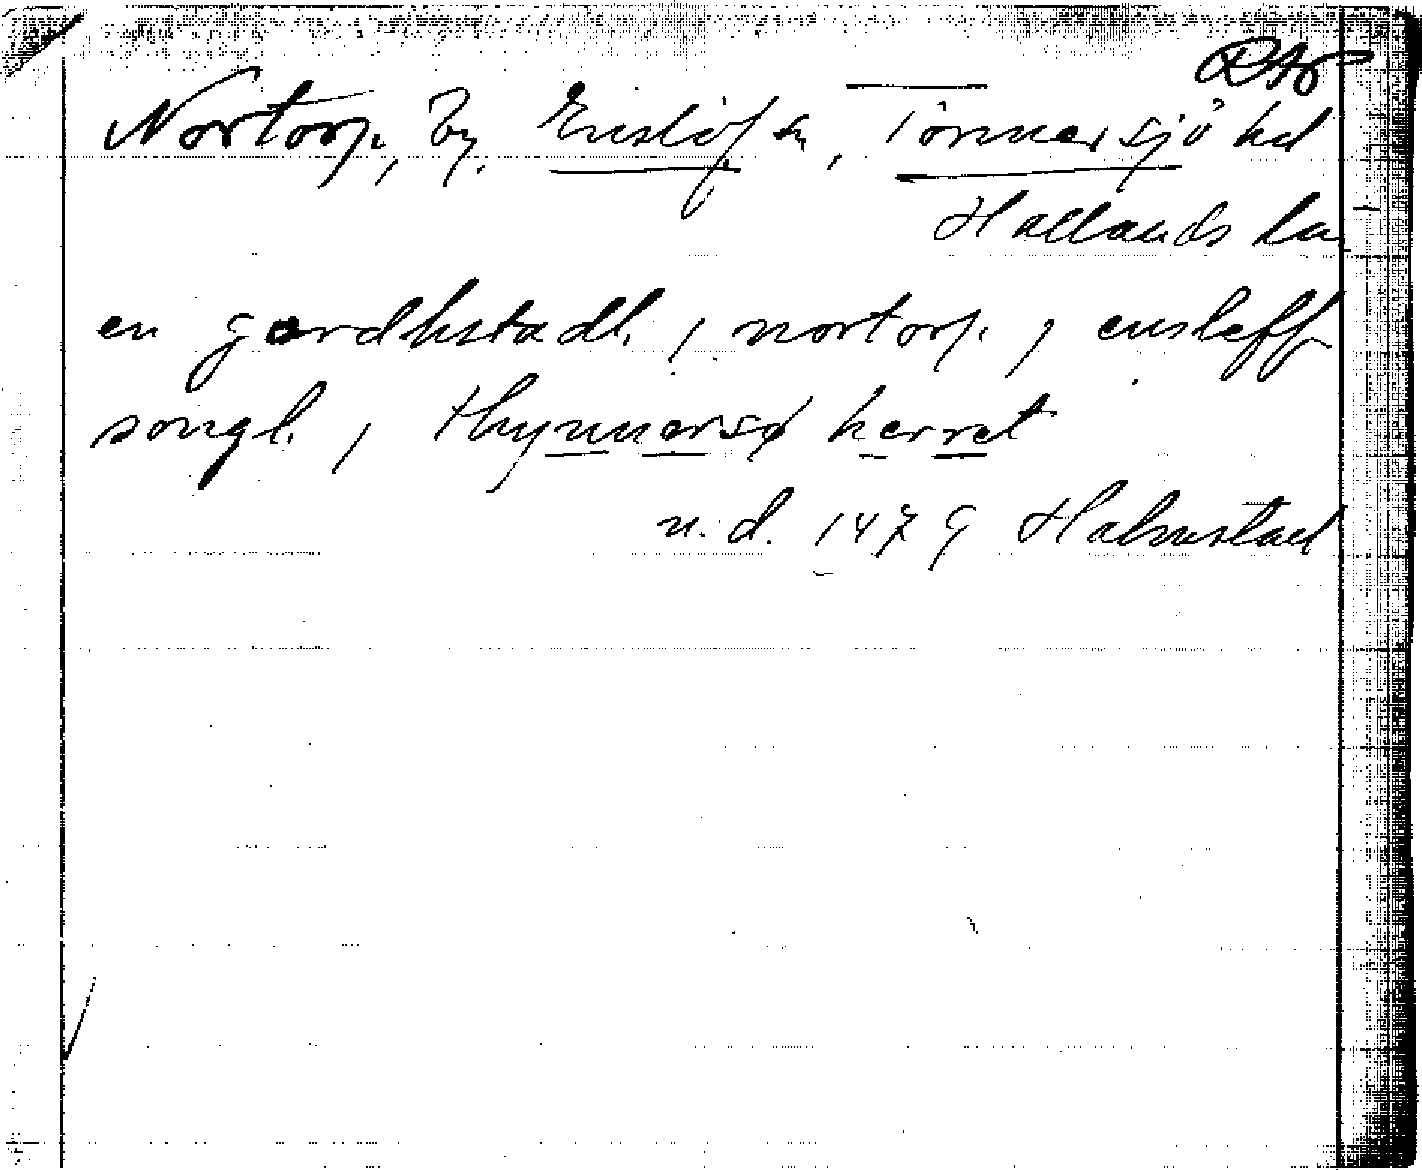 RAp
Nortorp, by, Enslöfs sn, Tönnersjö hd
Hallands län
en gardhstadh, i nortorp, i ensleff
songh, i thynnersø herret
u. d. 1479 Halmstad